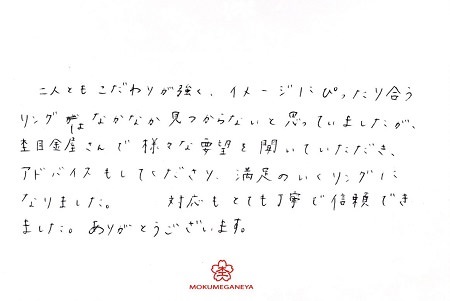 二人ともこだわりが強く、イメージにぴったり合う
リングはなかなか見つからないと思っていましたが、
杢目金屋さんで様々な要望を聞いていただき、
アドバイスもしてくださり、満足のいくリングに
なりました。 対応もとても丁寧で信頼でき
ました。ありがとうございます。
MOKUMEGANEYA